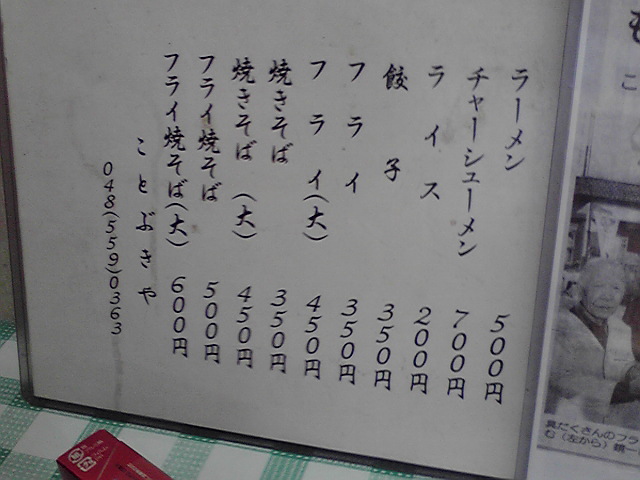 ラーメン 500円
チャーシューメン 700円
ライス 200円
餃子 350円
フライ 350円
フライ(大) 450円
焼きそば 350円
焼きそば(大) 450円
フライ焼そば 500円
フライ焼そば(大) 600円
ことぶきや
048(559)0363
具だくさんのフラ
む(左から)鏡一